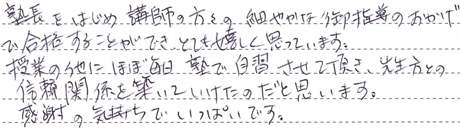 塾長をはじめ講師の方々の細やかな御指導のおかげ
で合格することができとても嬉しく思っています。
授業の他にほぼ毎日塾で自習させて頂き、先生方との
信頼関係を築いていけたのだと思います。
感謝の気持ちでいっぱいです。